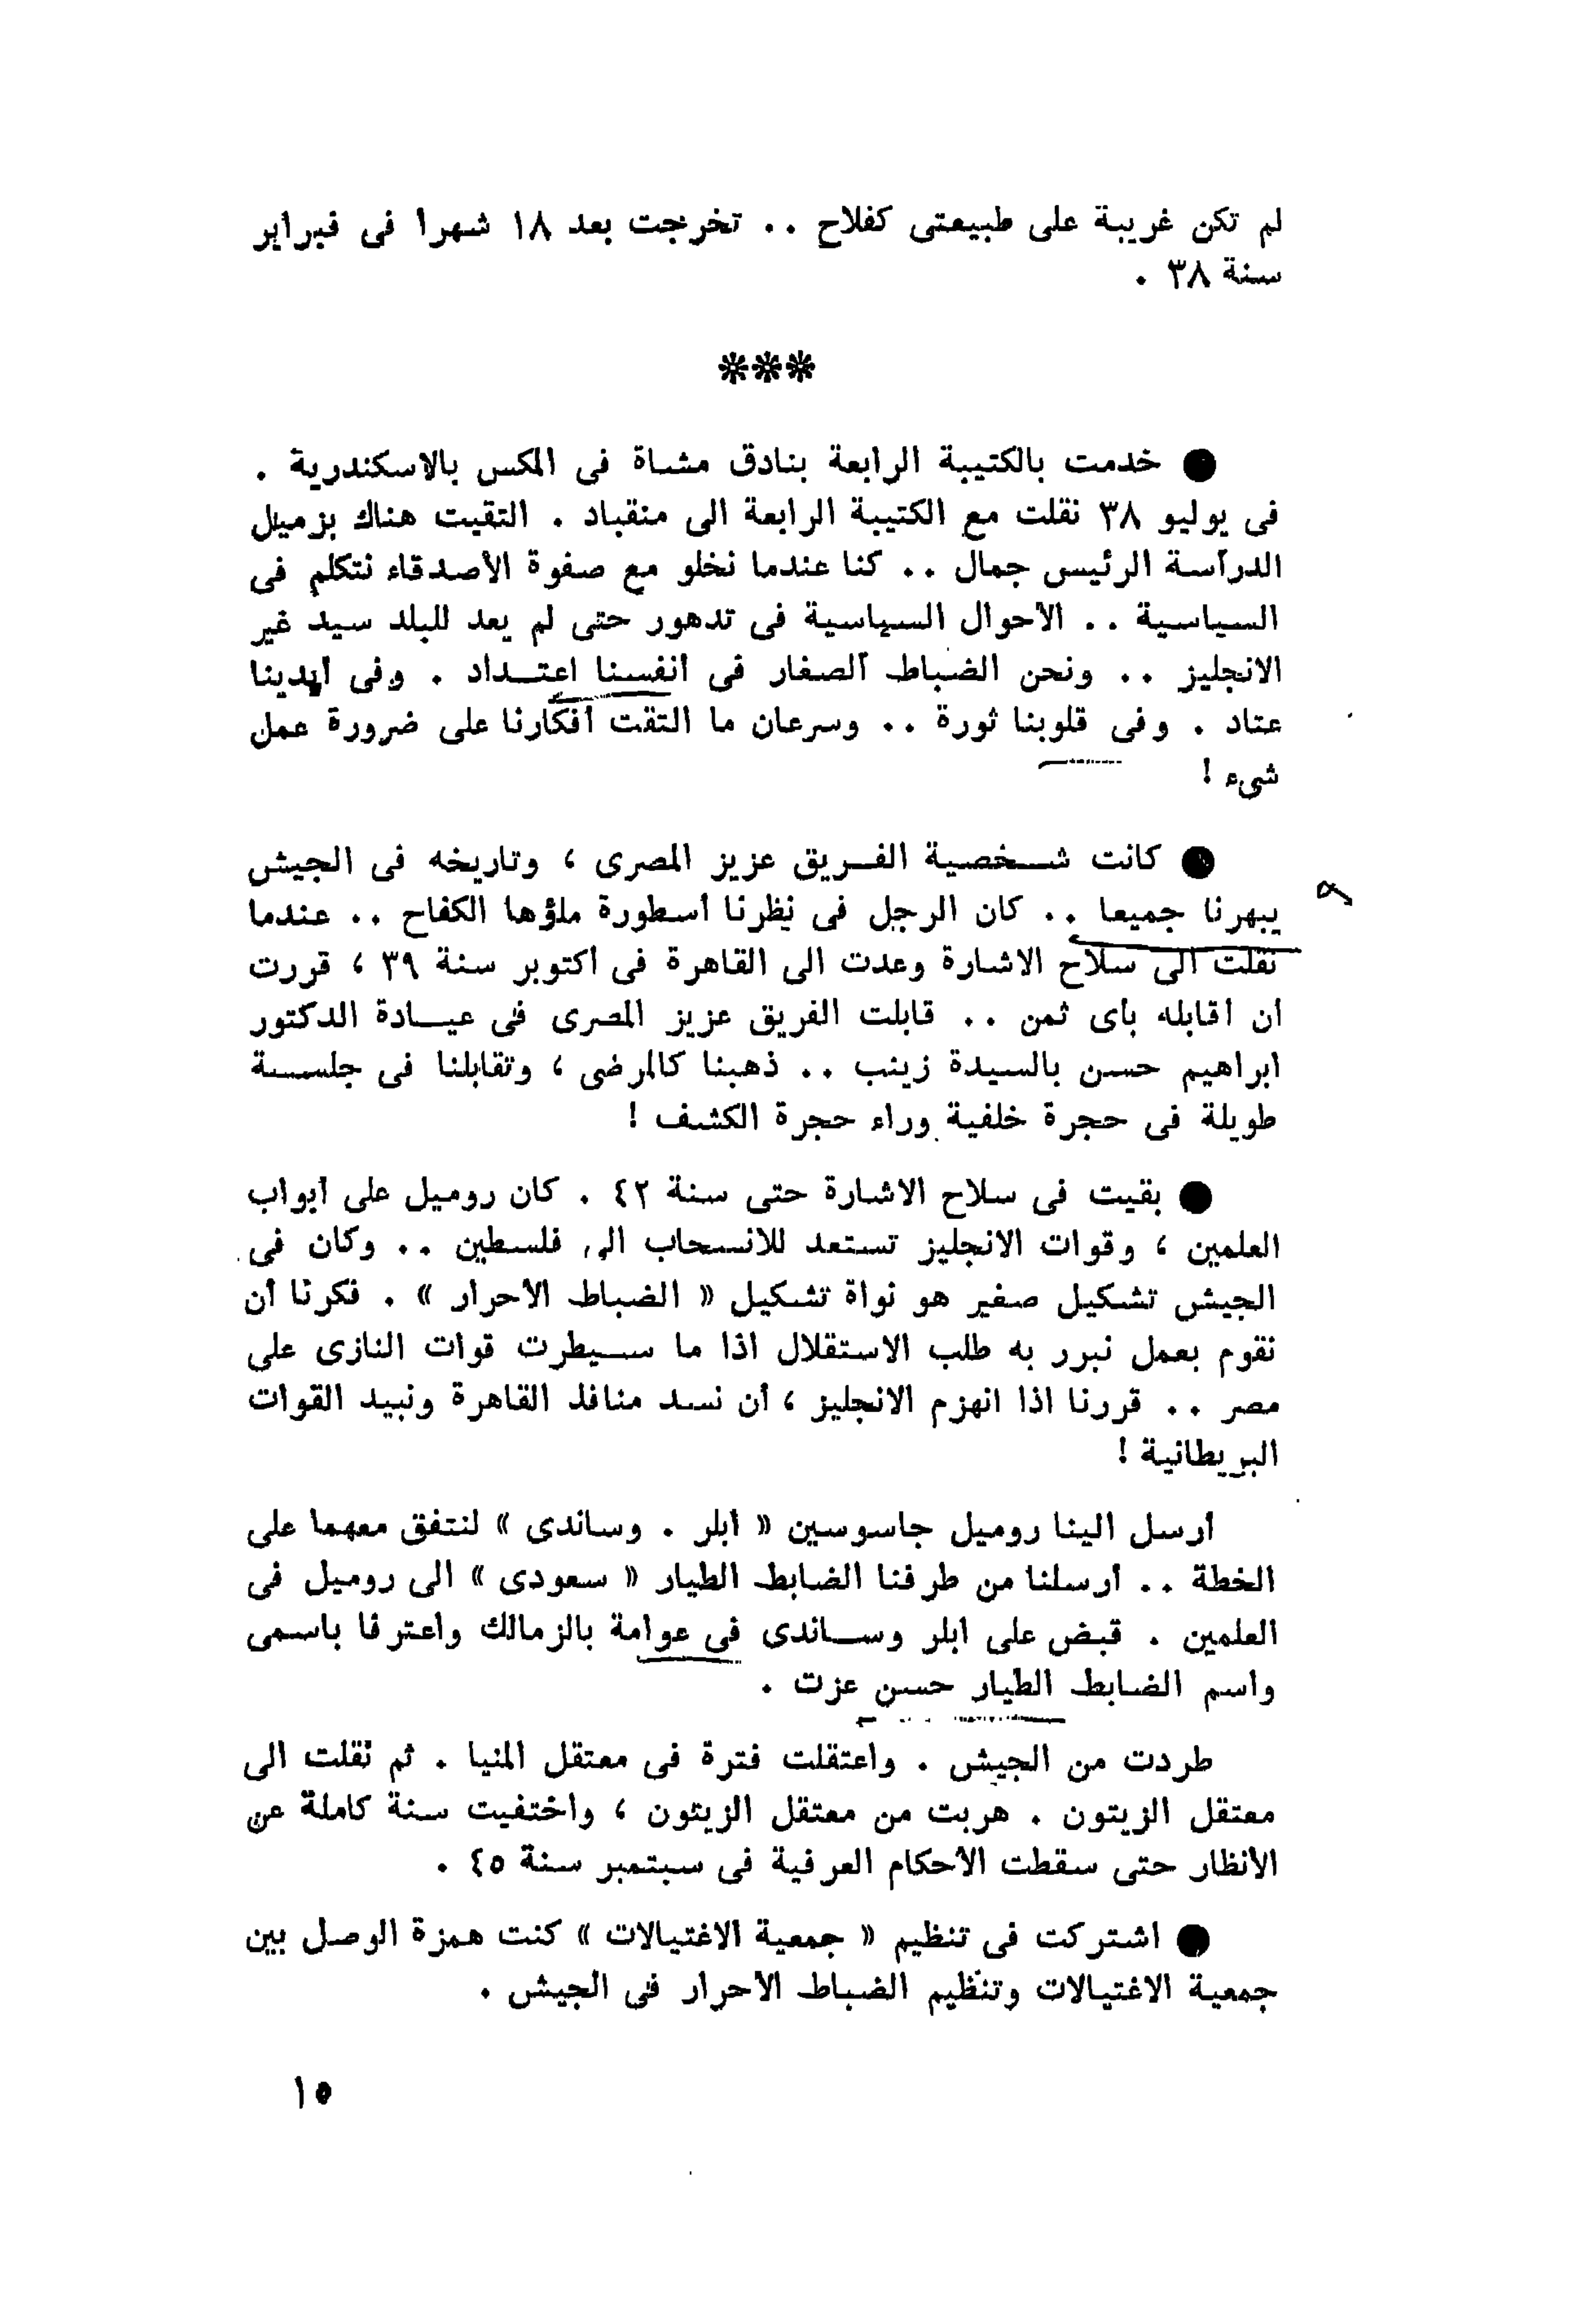 لم تكن غريبة على طبيعتى كفلاح .. تخرجت بعد ١٨ شهرا فى فبراير
سنة ٣٨ .
***
● خدمت بالكتيبة الرابعة بنادق مشاة فى المكس بالاسكندرية .
فى يوليو ٣٨ نقلت مع الكتيبة الرابعة الى منقباد . التقيت هناك بزميل
الدراسة الرئيس جمال .. كنا عندما نخلو مع صفوة الأصدقاء نتكلم فى
السياسية .. الأحوال السياسية فى تدهور حتى لم يعد للبلد سيد غير
الانجليز .. ونحن الضباط الصغار فى أنفسنا اعتداد . وفى أيدينا
عتاد . وفى قلوبنا ثورة .. وسرعان ما التقت أفكارنا على ضرورة عمل
شىء !
● كانت شخصية الفريق عزيز المصرى ، وتاريخه فى الجيش
يبهرنا جميعا .. كان الرجل فى نظرنا أسطورة ملؤها الكفاح .. عندما
نقلت الى سلاح الاشارة وعدت الى القاهرة فى أكتوبر سنة ٣٩ ، قررت
أن أقابله بأى ثمن .. قابلت الفريق عزيز المصرى فى عيادة الدكتور
ابراهيم حسن بالسيدة زينب .. ذهبنا كالمرضى ، وتقابلنا فى جلسة
طويلة فى حجرة خلفية وراء حجرة الكشف !
● بقيت فى سلاح الاشارة حتى سنة ٤٢ . كان روميل على أبواب
العلمين ، وقوات الانجليز تستعد للانسحاب الى فلسطين .. وكان فى
الجيش تشكيل صغير هو نواة تشكيل « الضباط الأحرار » . فكرنا أن
نقوم بعمل نبرر به طلب الاستقلال اذا ما سيطرت قوات النازى على
مصر .. قررنا اذا انهزم الانجليز ، أن نسد منافذ القاهرة ونبيد القوات
البريطانية !
أرسل الينا روميل جاسوسين « أبلر . وساندى » لنتفق معهما على
الخطة .. أرسلنا من طرفنا الضابط الطيار « سعودى » الى روميل فى
العلمين . قبض على ابلر وساندى فى عوامة بالزمالك واعترفا باسمى
واسم الضابط الطيار حسن عزت .
طردت من الجيش . واعتقلت فترة فى معتقل المنيا . ثم نقلت الى
معتقل الزيتون . هربت من معتقل الزيتون ، واختفيت سنة كاملة عن
الأنظار حتى سقطت الأحكام العرفية فى سبتمبر سنة ٤٥ .
● اشتركت فى تنظيم « جمعية الاغتيالات » كنت همزة الوصل بين
جمعية الاغتيالات وتنظيم الضباط الأحرار فى الجيش .
١٥